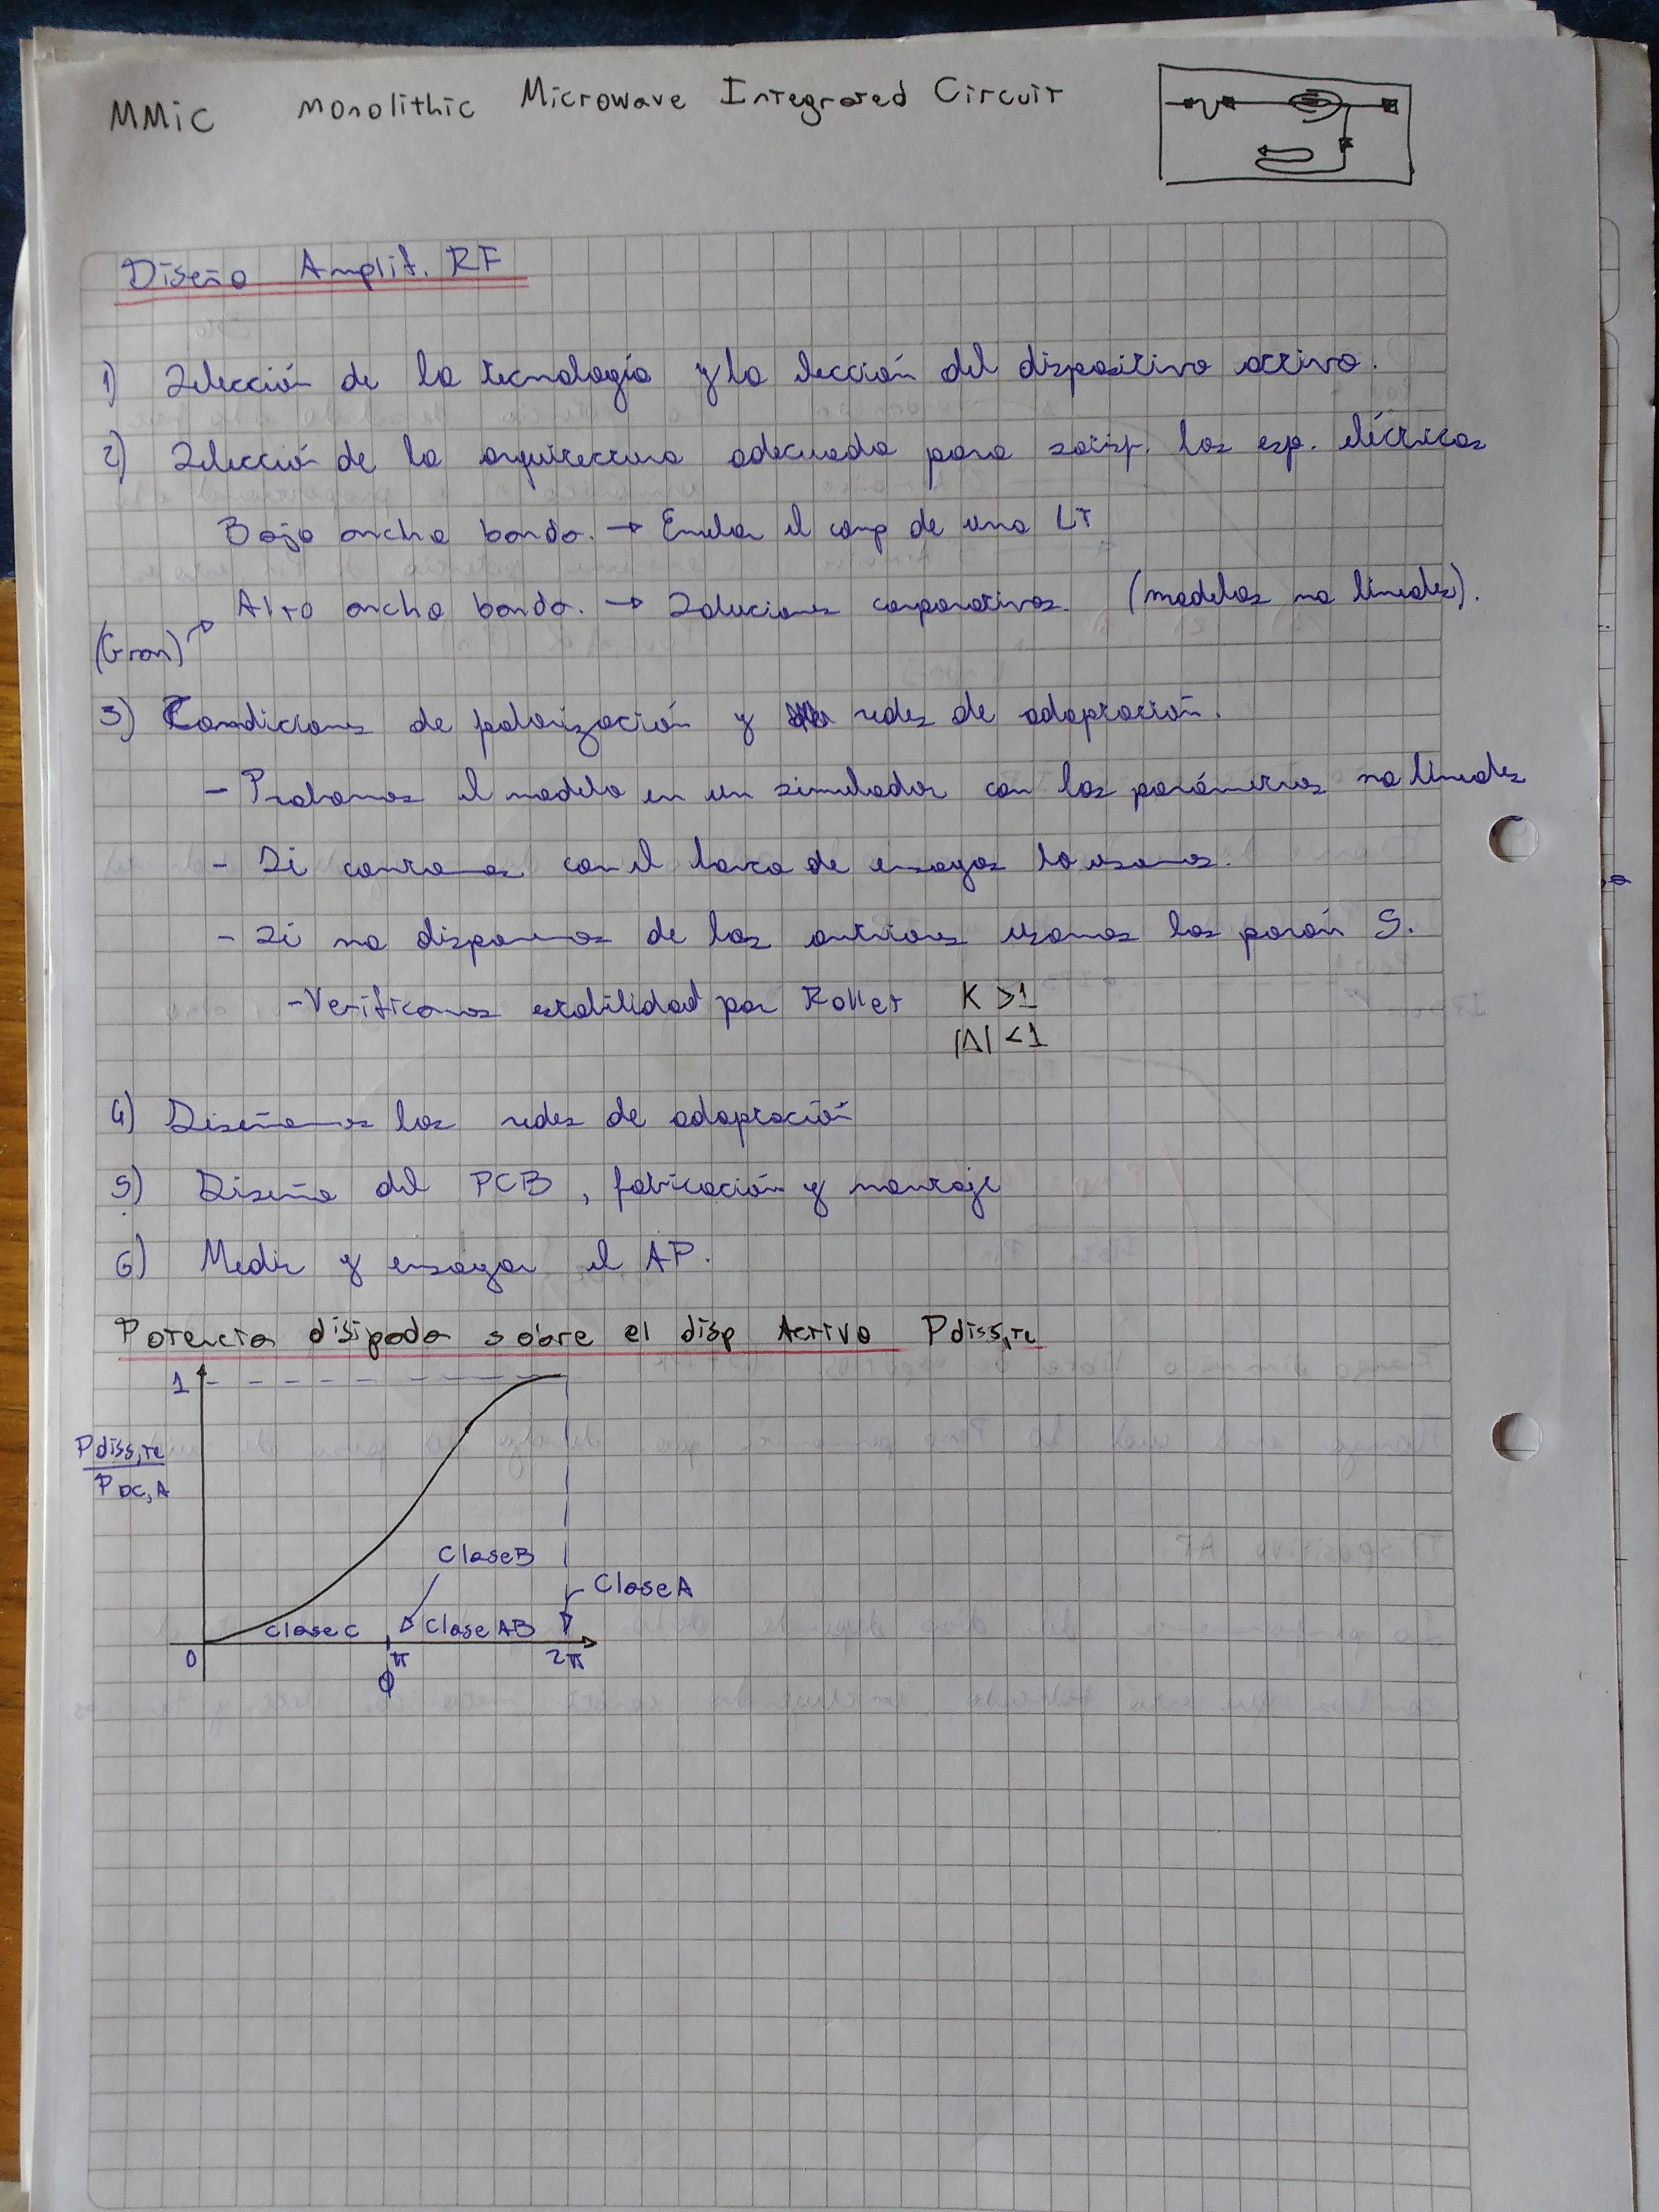 MMiC Monolithic Microwave Integrated Circuit
Diseño Amplif. RF
1) Selección de la tecnología y la elección del dispositivo activo.
2) Selección de la arquitectura adecuada para satisf. las esp. eléctricas
Bajo ancho banda. → Emular el comp de una LT
Alto ancho banda. → Soluciones corporativas (modelos no lineales).
(Gran)
3) Condiciones de polarización y redes de adaptación.
- Probamos el modelo en un simulador con los parámetros no lineales
- Si contamos con el banco de ensayos lo usamos.
- Si no disponemos de los anteriores usamos los parám S.
- Verificamos estabilidad por Rollet K > 1
|Δ| < 1
4) Diseñamos las redes de adaptación
5) Diseño del PCB, fabricación y montaje
6) Medir y ensayar el AP.
Potencia disipada sobre el disp Activo Pdiss,te
1
Pdiss,te
PDC,A
Clase B
Clase A
Clase C Clase AB
0 π 2π
Φ